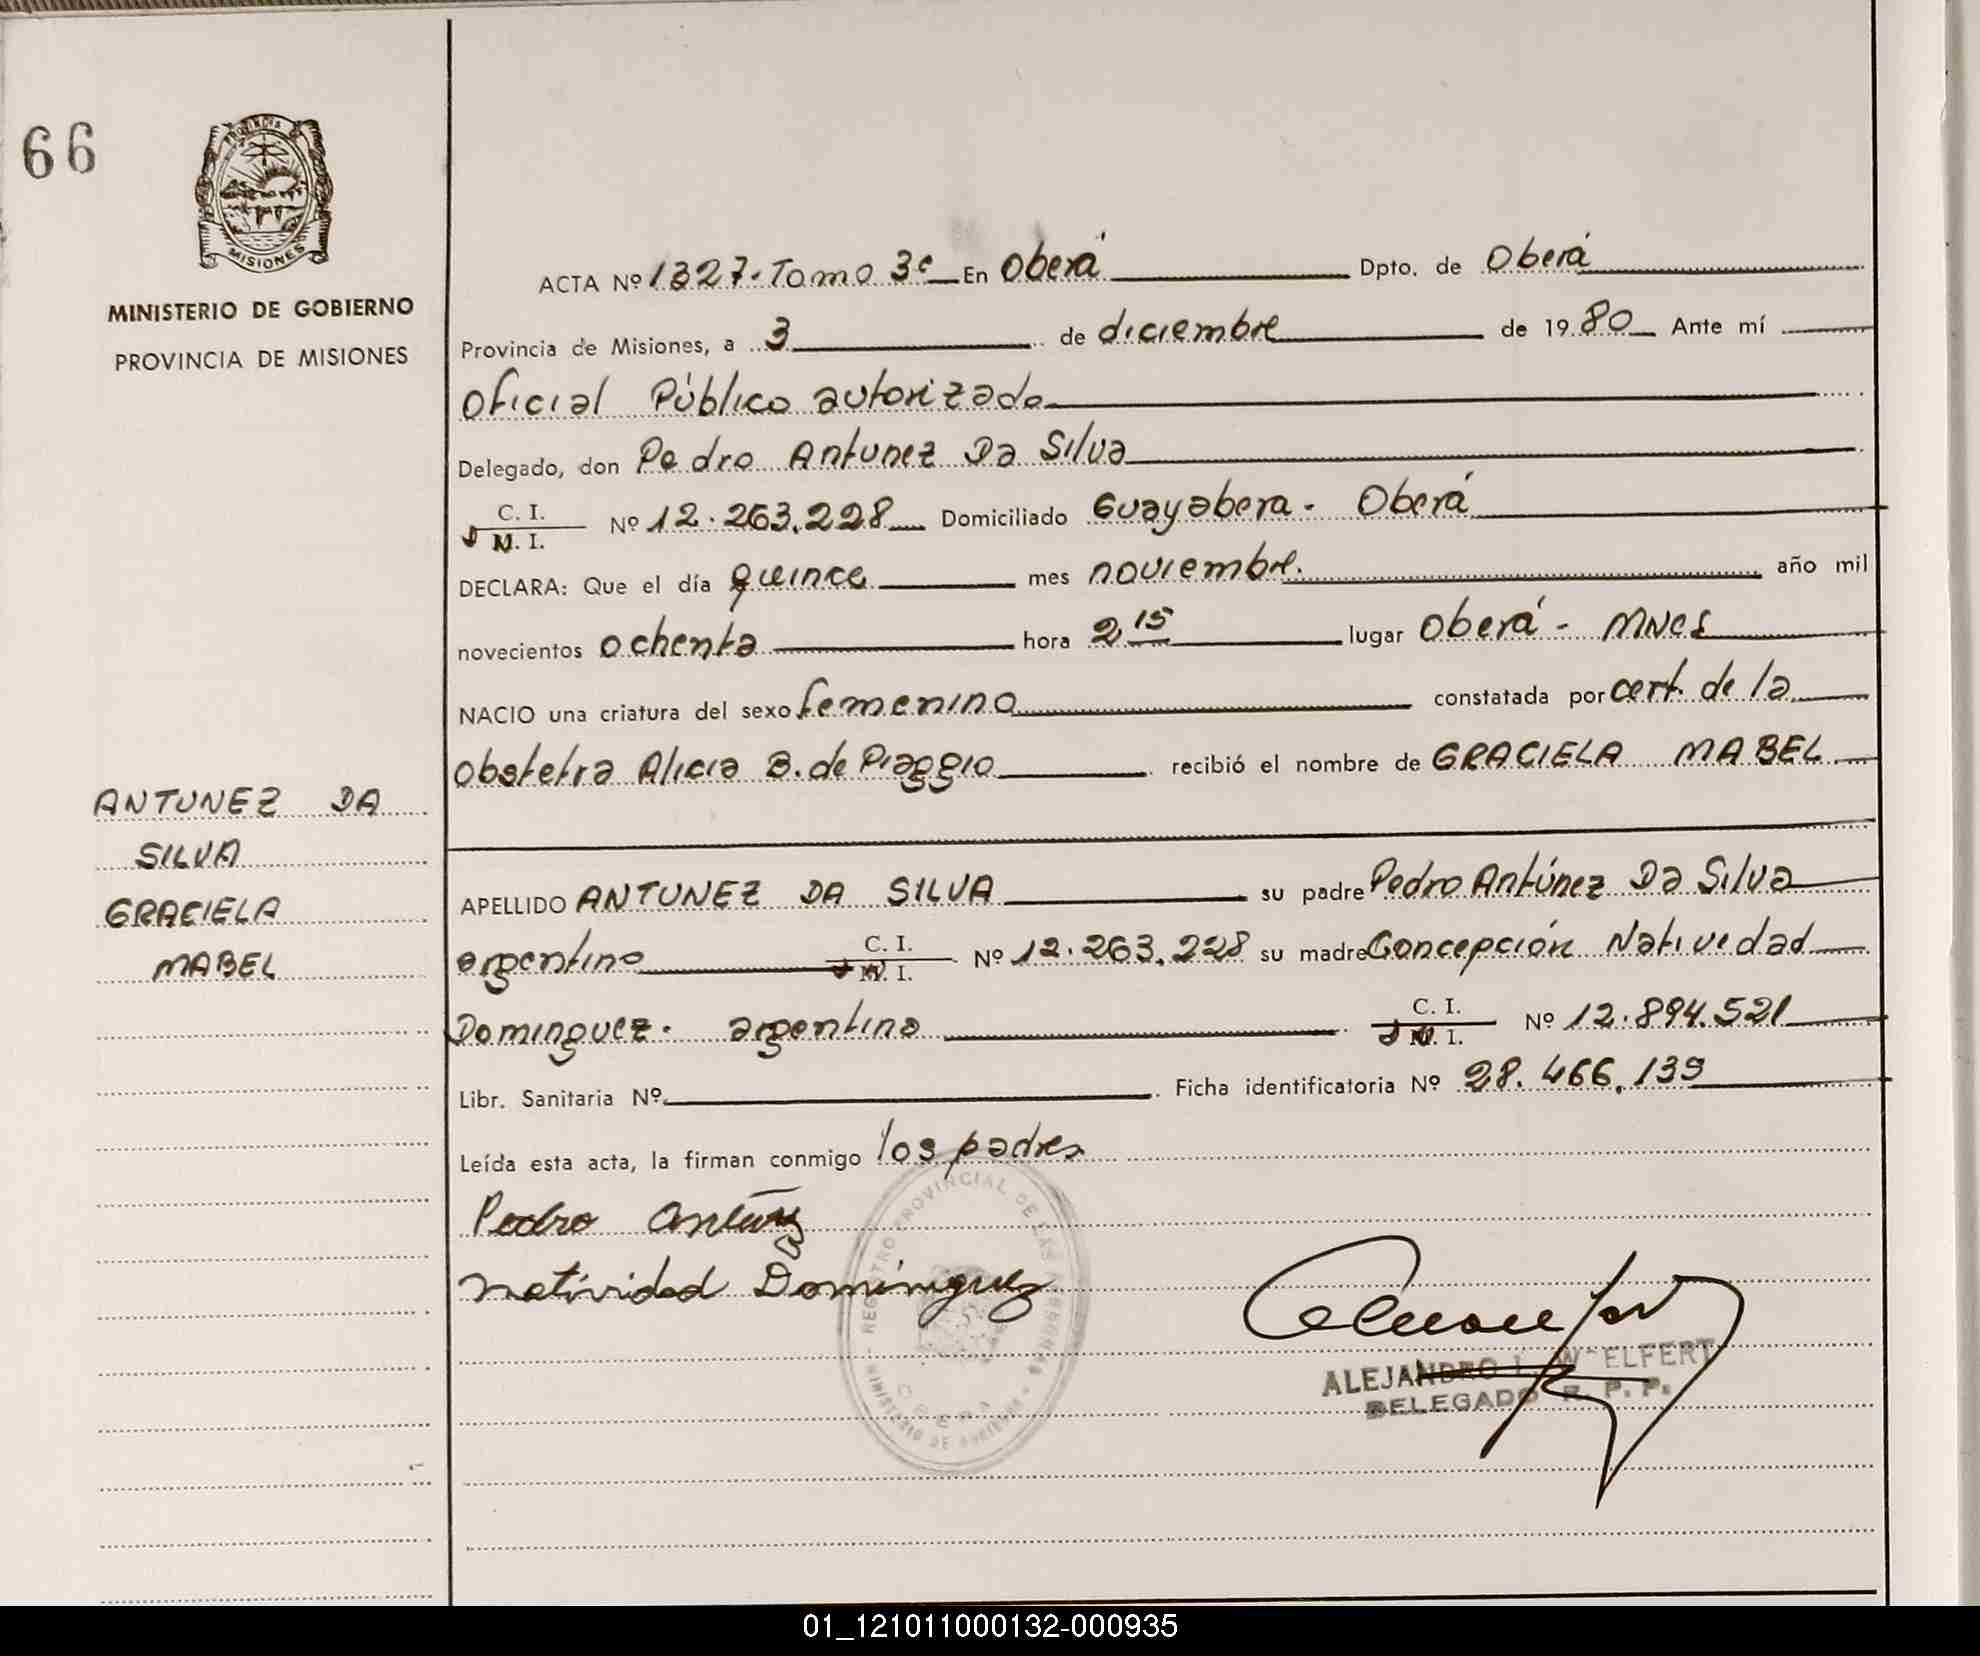 66
PROVINCIA
MISIONES
MINISTERIO DE GOBIERNO
PROVINCIA DE MISIONES
ANTUNEZ DA
SILVA
GRACIELA
MABEL
ACTA Nº 1327. Tomo 3º En Oberá Dpto. de Oberá
Provincia de Misiones, a 3 de diciembre de 1980 Ante mí
Oficial Público autorizado
Delegado, don Pedro Antunez Da Silva
C. I.
D M. I. Nº 12.263.228 Domiciliado Guayabera - Oberá
DECLARA: Que el día quince mes noviembre. año mil
novecientos ochenta hora 2 15 lugar Oberá - Mnes
NACIO una criatura del sexo femenino constatada por cert. de la
Obstetra Alicia B. de Piaggio recibió el nombre de GRACIELA MABEL
APELLIDO ANTUNEZ DA SILVA su padre Pedro Antúnez Da Silva
argentino C. I. D M. I. Nº 12.263.228 su madre Concepción Natividad
Dominguez. argentina C. I. D M. I. Nº 12.894.521
Libr. Sanitaria Nº Ficha identificatoria Nº 28.466.139
Leída esta acta, la firman conmigo los padres
Pedro Antúnez
Natividad Dominguez
REGISTRO PROVINCIAL DE LAS PERSONAS
MINISTERIO DE GOBIERNO
OBERA
ALEJANDRO L. WELFERT
DELEGADO R. P. P.
01_121011000132-000935